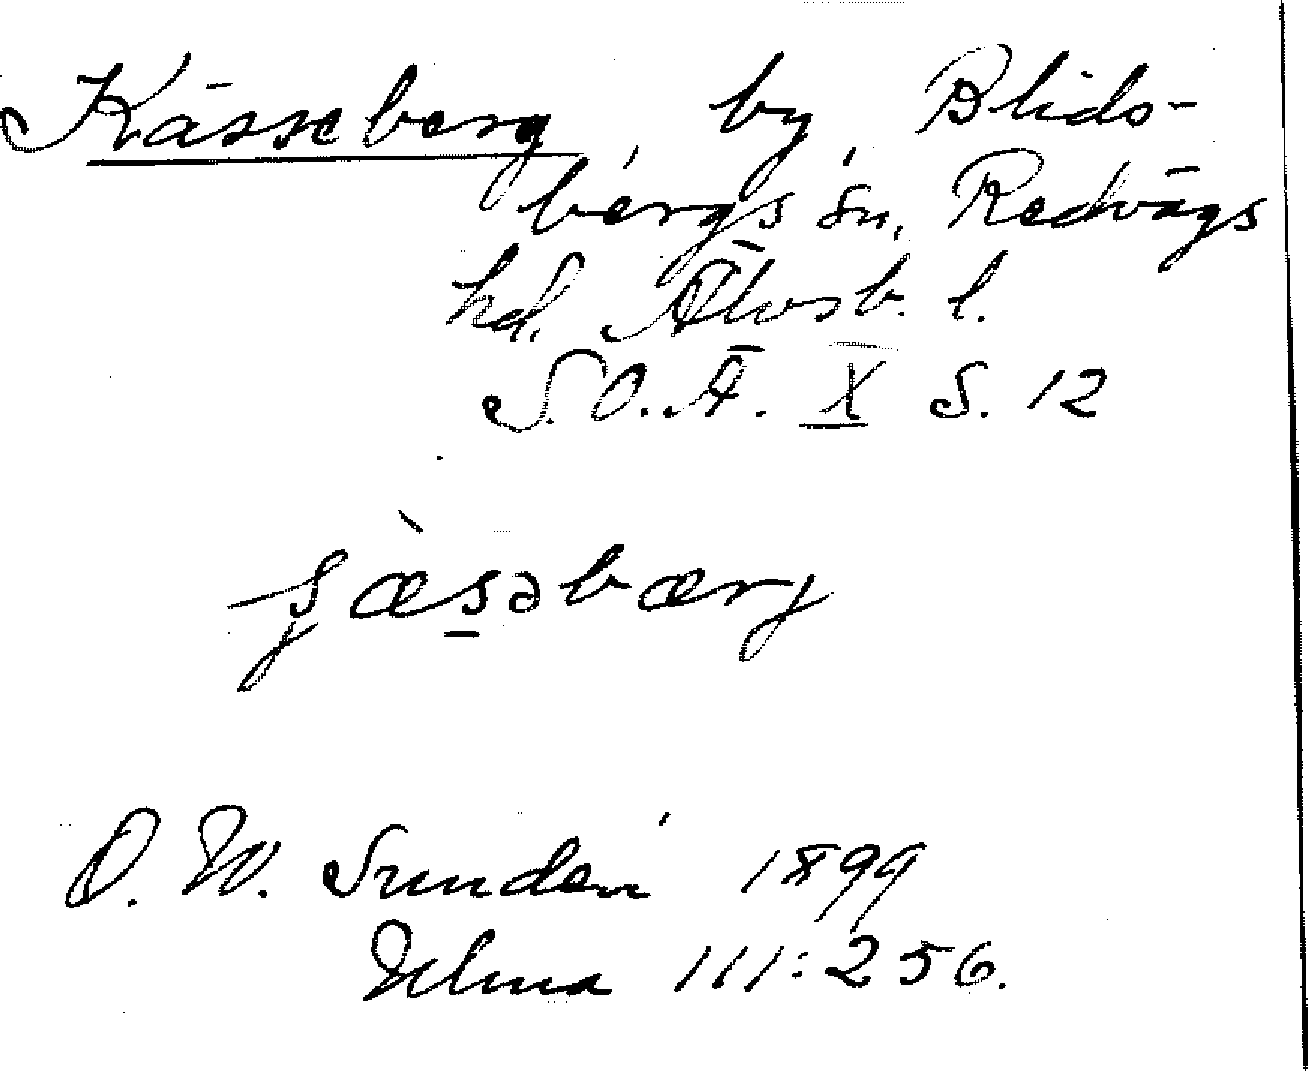 Kässeberg, by, Blids-
bergs sn, Redvägs
hd. Älvsb. l.
S.O.Ä. X S. 12
O. W. Sundén 1899
Ulma 111:256.